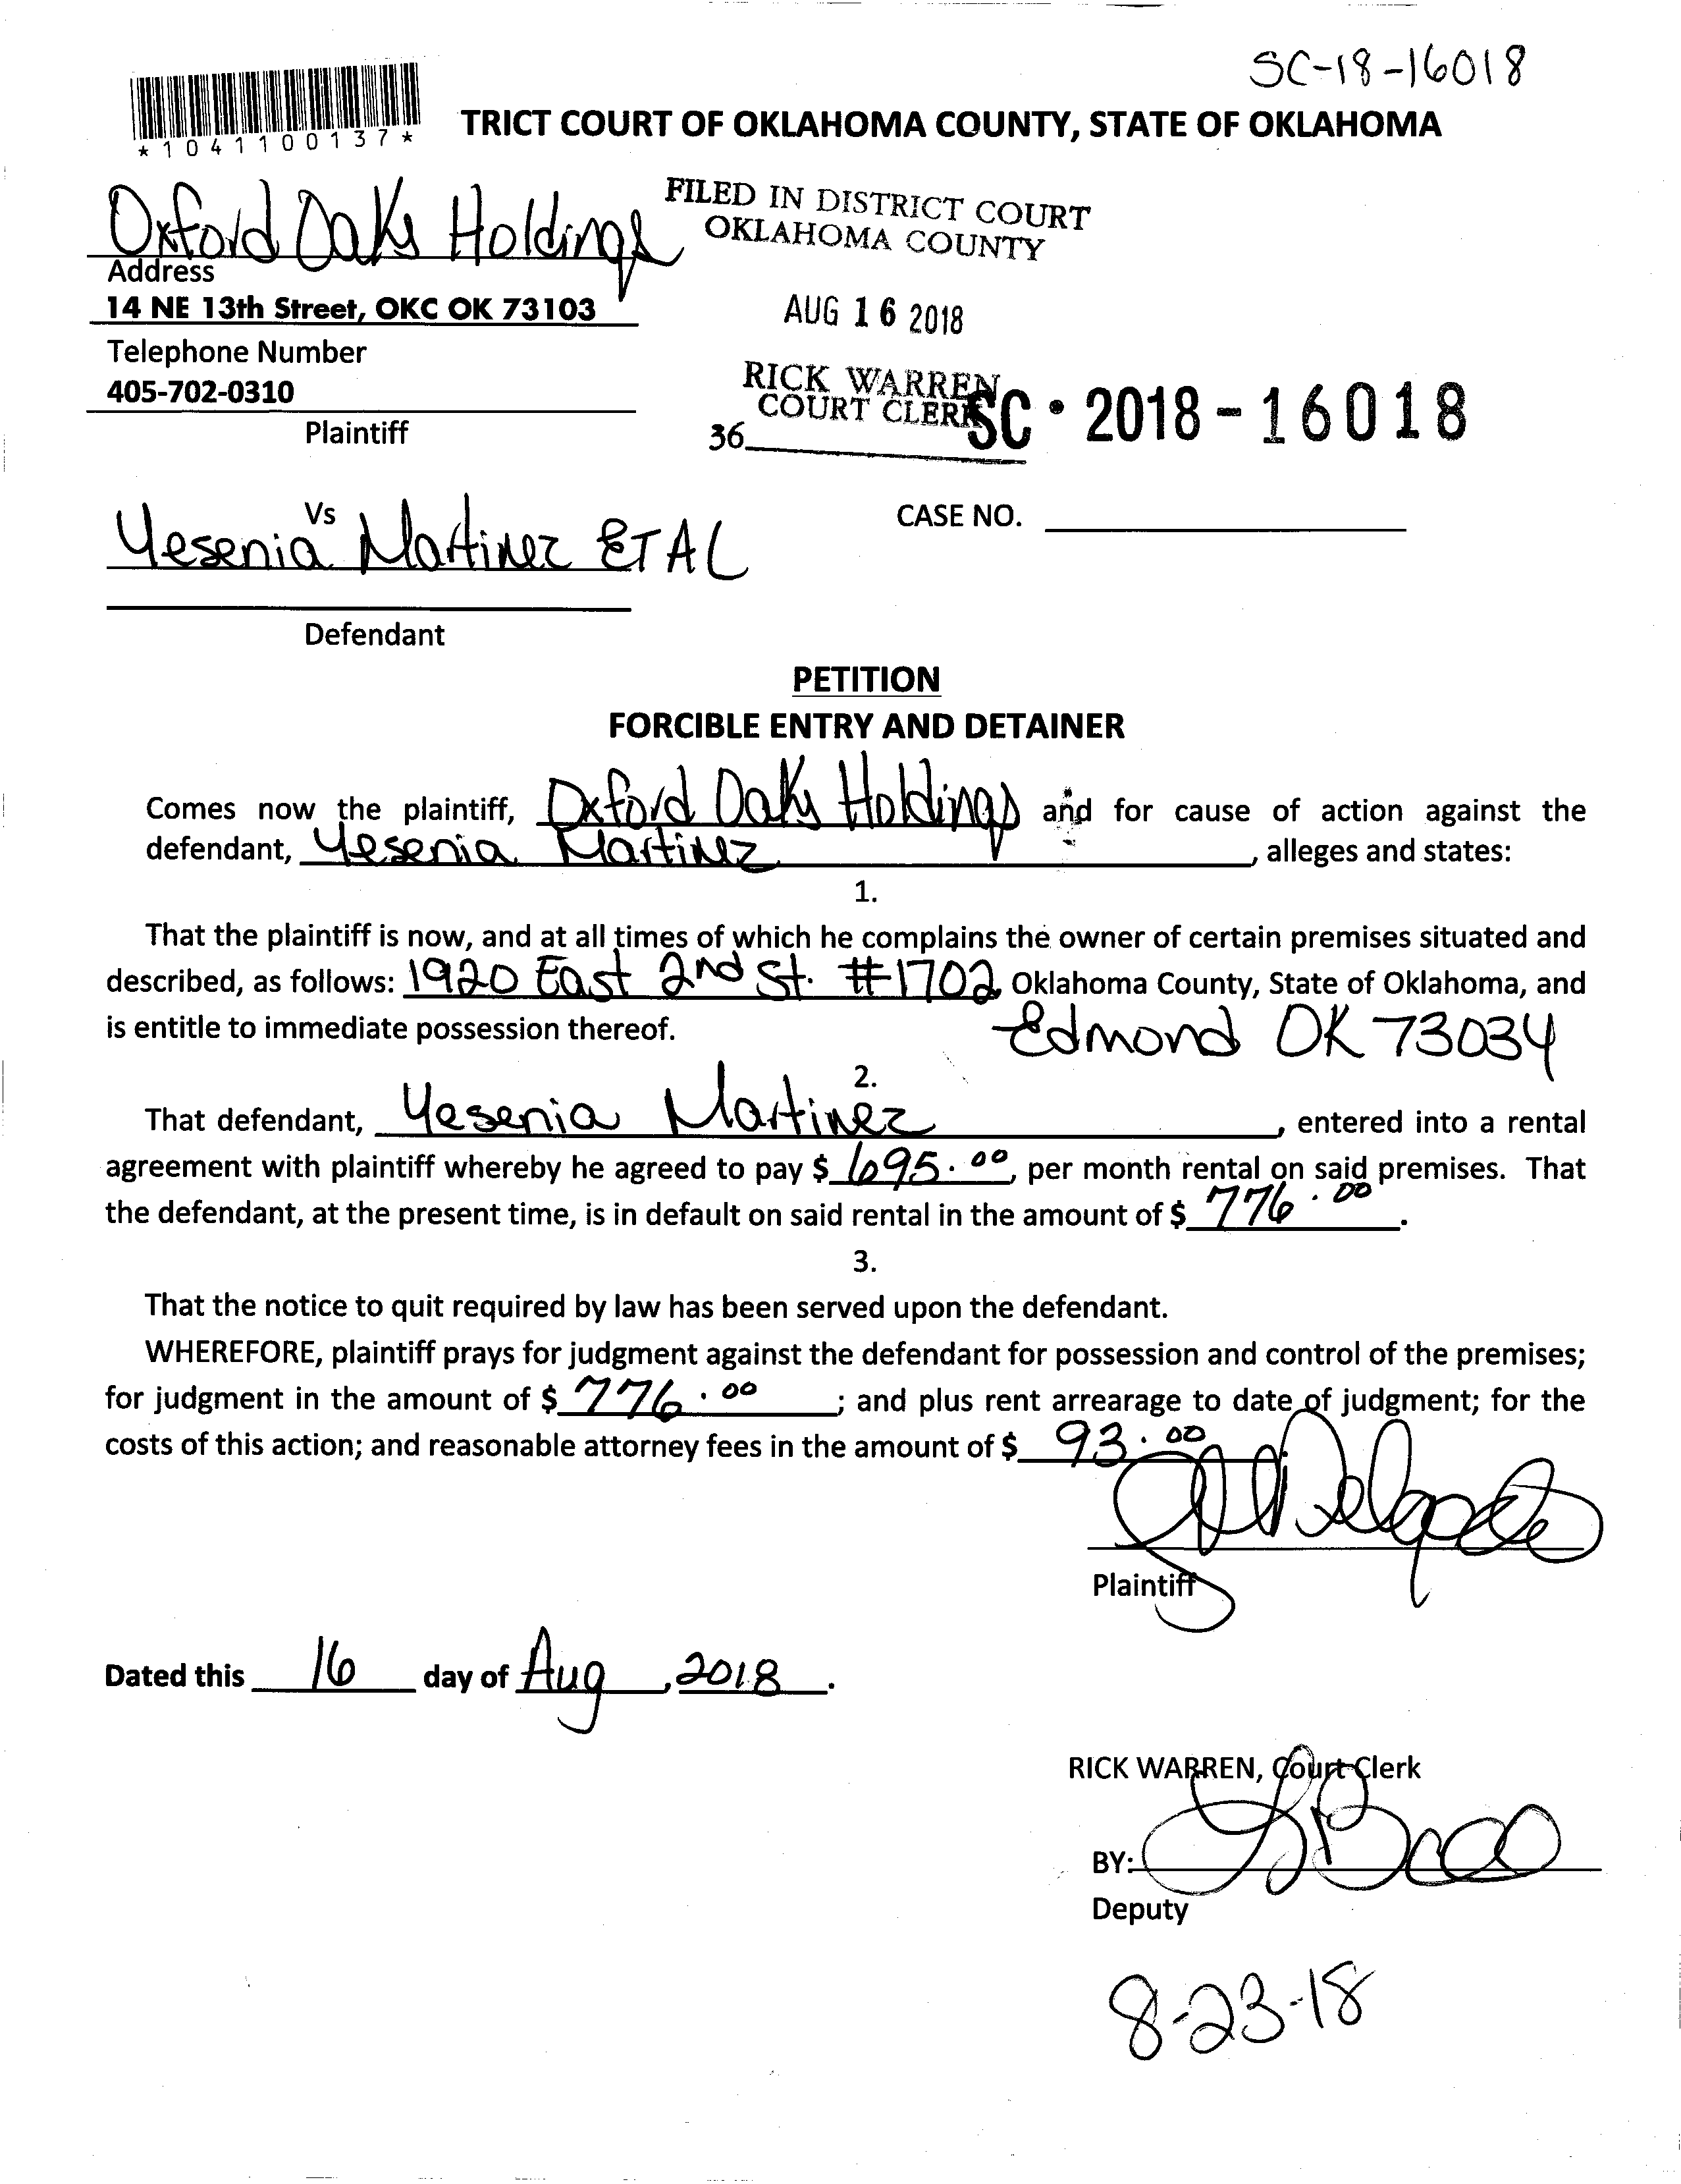 SC-18-16018
*1041100137*
TRICT COURT OF OKLAHOMA COUNTY, STATE OF OKLAHOMA
Oxford Oaks Holdings
FILED IN DISTRICT COURT
OKLAHOMA COUNTY
Address
14 NE 13th Street, OKC OK 73103
AUG 16 2018
Telephone Number
405-702-0310
RICK WARREN
COURT CLERK
SC • 2018-16018
36
Plaintiff
Vs
CASE NO.
Yesenia Martinez ETAL
Defendant
PETITION
FORCIBLE ENTRY AND DETAINER
Comes now the plaintiff, Oxford Oaks Holdings and for cause of action against the
defendant, Yesenia Martinez, alleges and states:
1.
That the plaintiff is now, and at all times of which he complains the owner of certain premises situated and
described, as follows: 1920 East 2nd St. #1702, Oklahoma County, State of Oklahoma, and
is entitle to immediate possession thereof.
Edmond OK 73034
2.
That defendant, Yesenia Martinez, entered into a rental
agreement with plaintiff whereby he agreed to pay $ 695.00, per month rental on said premises. That
the defendant, at the present time, is in default on said rental in the amount of $ 776.00.
3.
That the notice to quit required by law has been served upon the defendant.
WHEREFORE, plaintiff prays for judgment against the defendant for possession and control of the premises;
for judgment in the amount of $ 776.00; and plus rent arrearage to date of judgment; for the
costs of this action; and reasonable attorney fees in the amount of $ 93.00
Plaintiff
Dated this 16 day of Aug, 2018.
RICK WARREN, Court Clerk
BY:
Deputy
8-23-18